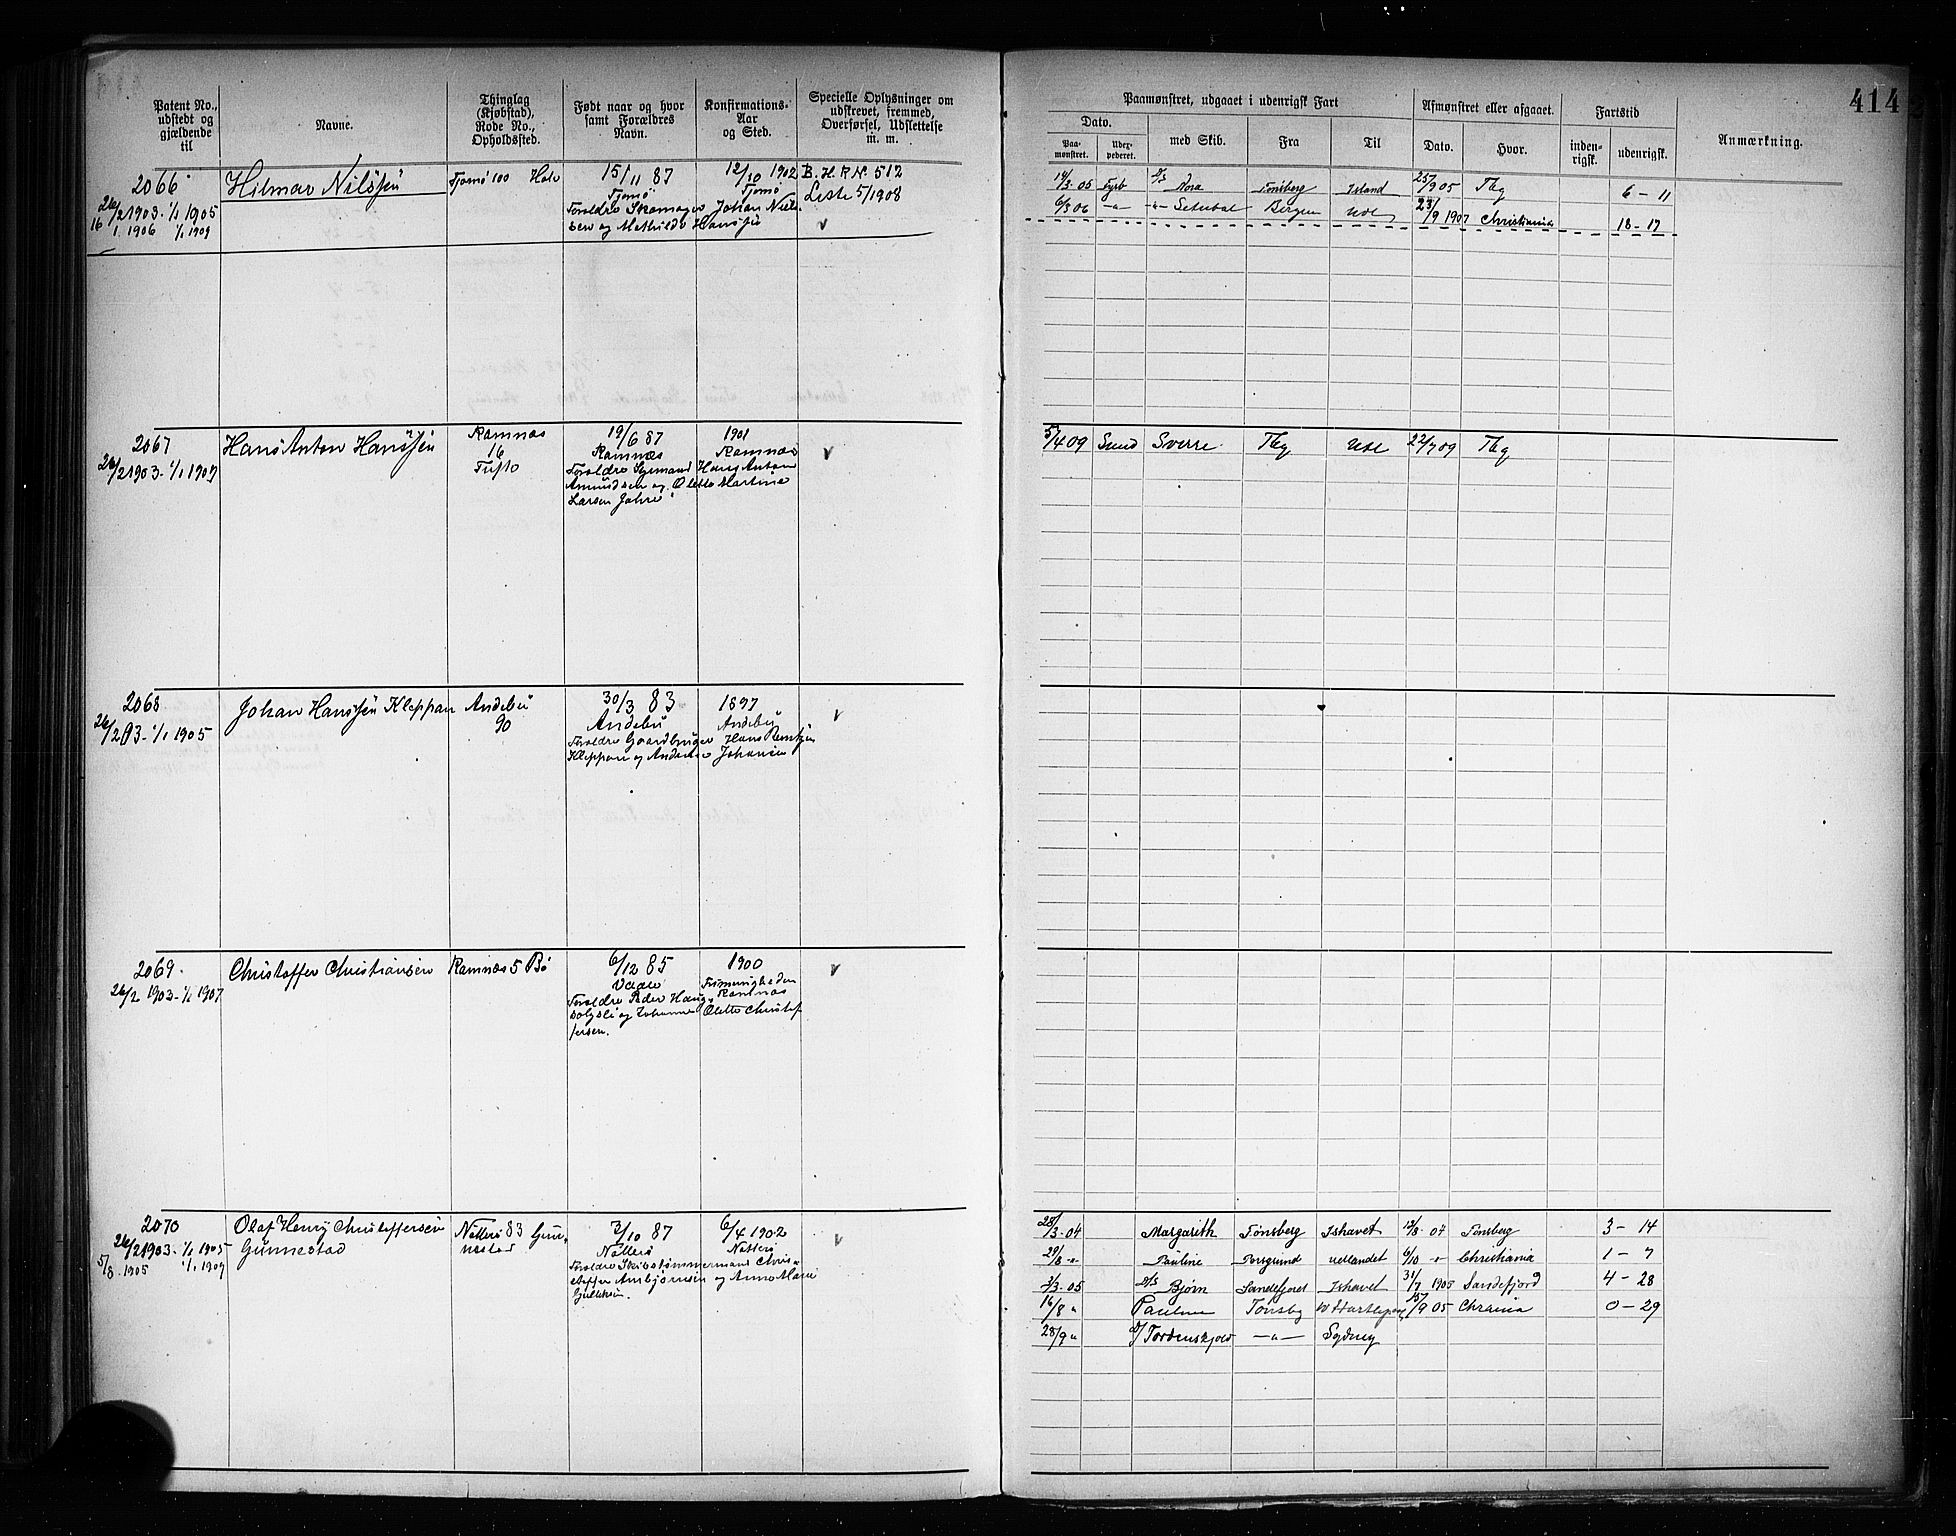 414
Patent No., udstedt og gjældende til
Navne.
Thinglag (Kjøbstad), Rode No., Opholdssted.
Født naar og hvor samt Forældres Navn.
Konfirmations- Aar og Sted.
Specielle Oplysninger om udskrevet, fremmed, Overførsel, Udslettelse m. m.
Paamønstret, udgaaet i udenrigsk Fart
Afmønstret eller afgaaet.
Fartstid
Anmærkning.
Dato.
Paa- mønstret.
Uder- pederet.
med Skib.
Fra
Til
Dato.
Hvor.
inden- rigsk.
udenrigsk.
2066
Hilmar Nilssen
Tjømø 100
15/11 87
12/10 1902
B. H. R. N. 512
Tjømø
Tjømø
Liste 5/1908
26/2 1903 - 1/1 1905
Forældre Skomager Johan Niel-
16/1. 1906 1/1 1909
sen og Mathilde Hanssen
14/3 05 Fyrb D/S Nora Tønsberg Island 25/9 05 Tbg 6 - 11
6/3 06 -"- -"- Setubal Bergen Udl 23/9 1907 Christiania 18 - 17
2067
Hans Anton Hanssen
Ramnæs
19/6 87
1901
16
Ramnæs
Ramnæs
26/2 1903 - 1/1 1907
Forældre Sømand Hans Anton
Amundsen og Olette Martine
Larsen Jahre
5/4 09 Sverre Tbg Udl 22/7 09 Tbg
2068
Johan Hanssen Kleppan
Andebu
30/3 83
1897
90
Andebu
Andebu
26/2 03 - 1/1 1905
Forældre Gaardbruger Hans
Kleppan og Andrine Johansen
2069
Christoffer Christiansen
Ramnæs 5 Bø
6/12 85
1900
26/2 1903 - 1/1 1907
Vaale
Frimenigheden
Ramnæs
Forældre Peder Hans
og Johanne Olette Christof
fersen.
2070
Olaf Henry Christoffersen
Nøtterø 83 Gun-
3/10 87
6/4 1902
26/2 1903 - 1/1 1905
Gunnestad
nestad
Nøtterø
Nøtterø
5/8 . 1905 1/1 1909
Forældre Skibstømmermand Chris-
toffer Ambjørnsen og Anne Marie
Gulliksen.
28/3 04 Margarith Tønsberg Ishavet 12/8 04 Tønsberg 3 - 14
29/8 -"- Pauline Porsgrund udlandet 6/10 -"- Christiania 1 - 7
3/3 05 D/S Bjørn Sandefjord Ishavet 31/7 1905 Sandefjord 4 - 28
16/8 " Pauline Tønsbg W Hartlepool 15/9 05 Chrania 0 - 29
28/9 " S/ Tordenskjold -"- Sydney